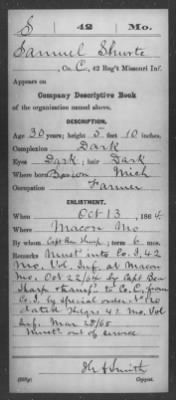 S 42 Mo.
Samuel Shurte
, Co. C, 42 Reg't Missouri Inf.
Appears on
Company Descriptive Book
of the organization named above.
DESCRIPTION.
Age 30 years; height 5 feet 10 inches.
Complexion Dark
Eyes Dark; hair Dark
Where born Mich
Occupation Farmer
ENLISTMENT.
When Oct 13, 1864.
Where Macon Mo
By whom Capt Ben Sharp; term 6 mos.
Remarks Must'd into Co. I, 42
Mo. Vol. Inf. at Macon
Mo. Oct 22/64 by Capt Ben
Sharp transf'd to Co. C, from
Co. I by special order No 20
dated Hdqrs 42 Mo. Vol
Inf. Mar 28/65
Must'd out of service
Smith
Copyist.